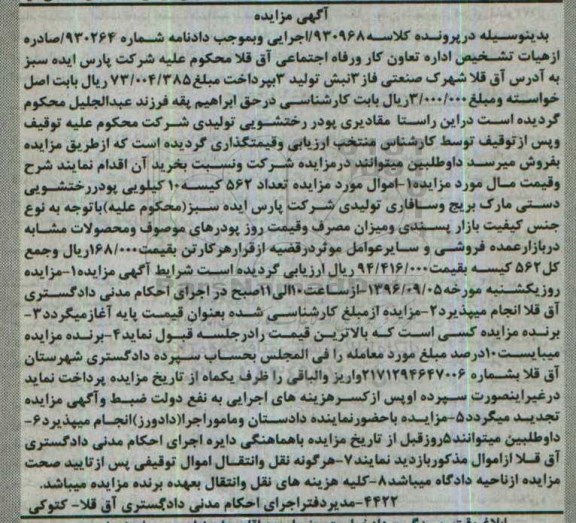 آگهی مزایده
بدینوسیله درپرونده کلاسه ۹۳۰۹۶۸/اجرایی وبموجب دادنامه شماره ۹۳۰۲۶۴/صادره
ازهیات تشخیص اداره تعاون کار ورفاه اجتماعی آق قلا محکوم علیه شرکت پارس ایده سبز
به آدرس آق قلا شهرک صنعتی فاز۳نبش تولید ۳بپرداخت مبلغ۷۳/۰۰۴/۳۸۵ ریال بابت اصل
خواسته ومبلغ۳/۰۰۰/۰۰۰ریال بابت کارشناسی درحق ابراهیم یقه فرزند عبدالجلیل محکوم
گردیده است دراین راستا مقادیری پودر رختشویی تولیدی شرکت محکوم علیه توقیف
وپس ازتوقیف توسط کارشناس منتخب ارزیابی وقیمتگذاری گردیده است که ازطریق مزایده
بفروش میرسد داوطلبین میتوانند درمزایده شرکت ونسبت بخرید آن اقدام نمایند شرح
وقیمت مـال مورد مزایده۱-اموال مورد مزایده تعداد ۵۶۲ کیسه۱۰ کیلویی پودررختشویی
دستی مارک بریج وسافاری تولیدی شرکت پارس ایده سبز(محکوم علیه)باتوجه به نوع
جنس کیفیت بازار پسندی ومیزان مصرف وقیمت روز پودرهای موصوف ومحصولات مشابه
دربازارعمده فروشی و سایرعوامل موثردرقضیه ازقرارهرکارتن بقیمت۱۶۸/۰۰۰ریال وجمع
کل۵۶۲ کیسه بقیمت۹۴/۴۱۶/۰۰۰ ریال ارزیابی گردیده است شرایط آگهی مزایده۱-مزایده
روزیکشنبه مورخه ۱۳۹۶/۰۹/۰۵-ازساعت۱۰الی۱۱صبح در اجرای احکام مدنی دادگستری
آق قلا انجام میپذیرد۲-مزایده ازمبلغ کارشناسی شده بعنوان قیمت پایه آغازمیگردد۳-
برنده مزایده کسی است که بالاترین قیمت رادرجلسه قبول نماید۴-برنده مزایده
میبایست۱۰درصد مبلغ مورد معامله را فی المجلس بحساب سپرده دادگستری شهرستان
آق قلا بشماره ۲۱۷۱۲۹۴۶۴۷۰۰۶واریز والباقی را ظرف یکماه از تاریخ مزایده پرداخت نماید
درغیراینصورت سپرده اوپس ازکسرهزینه های اجرایی به نفع دولت ضبط وآگهی مزایده
تجدید میگردد۵-مزایده باحضورنماینده دادستان وماموراجرا(دادورز)انجام میپذیرد۶-
داوطلبین میتوانند۵روزقبل از تاریخ مزایده باهماهنگی دایره اجرای احکام مدنی دادگستری
آق قلا ازاموال مذکوربازدید نمایند۷-هرگونه نقل وانتقال اموال توقیفی پس ازتایید صحت
مزایده ازناحیه دادگاه میباشد۸-کلیه هزینه های نقل وانتقال بعهده برنده مزایده میباشد.
۴۴۲۲-مدیردفتراجرای احکام مدنی دادگستری آق قلا- کتوکی